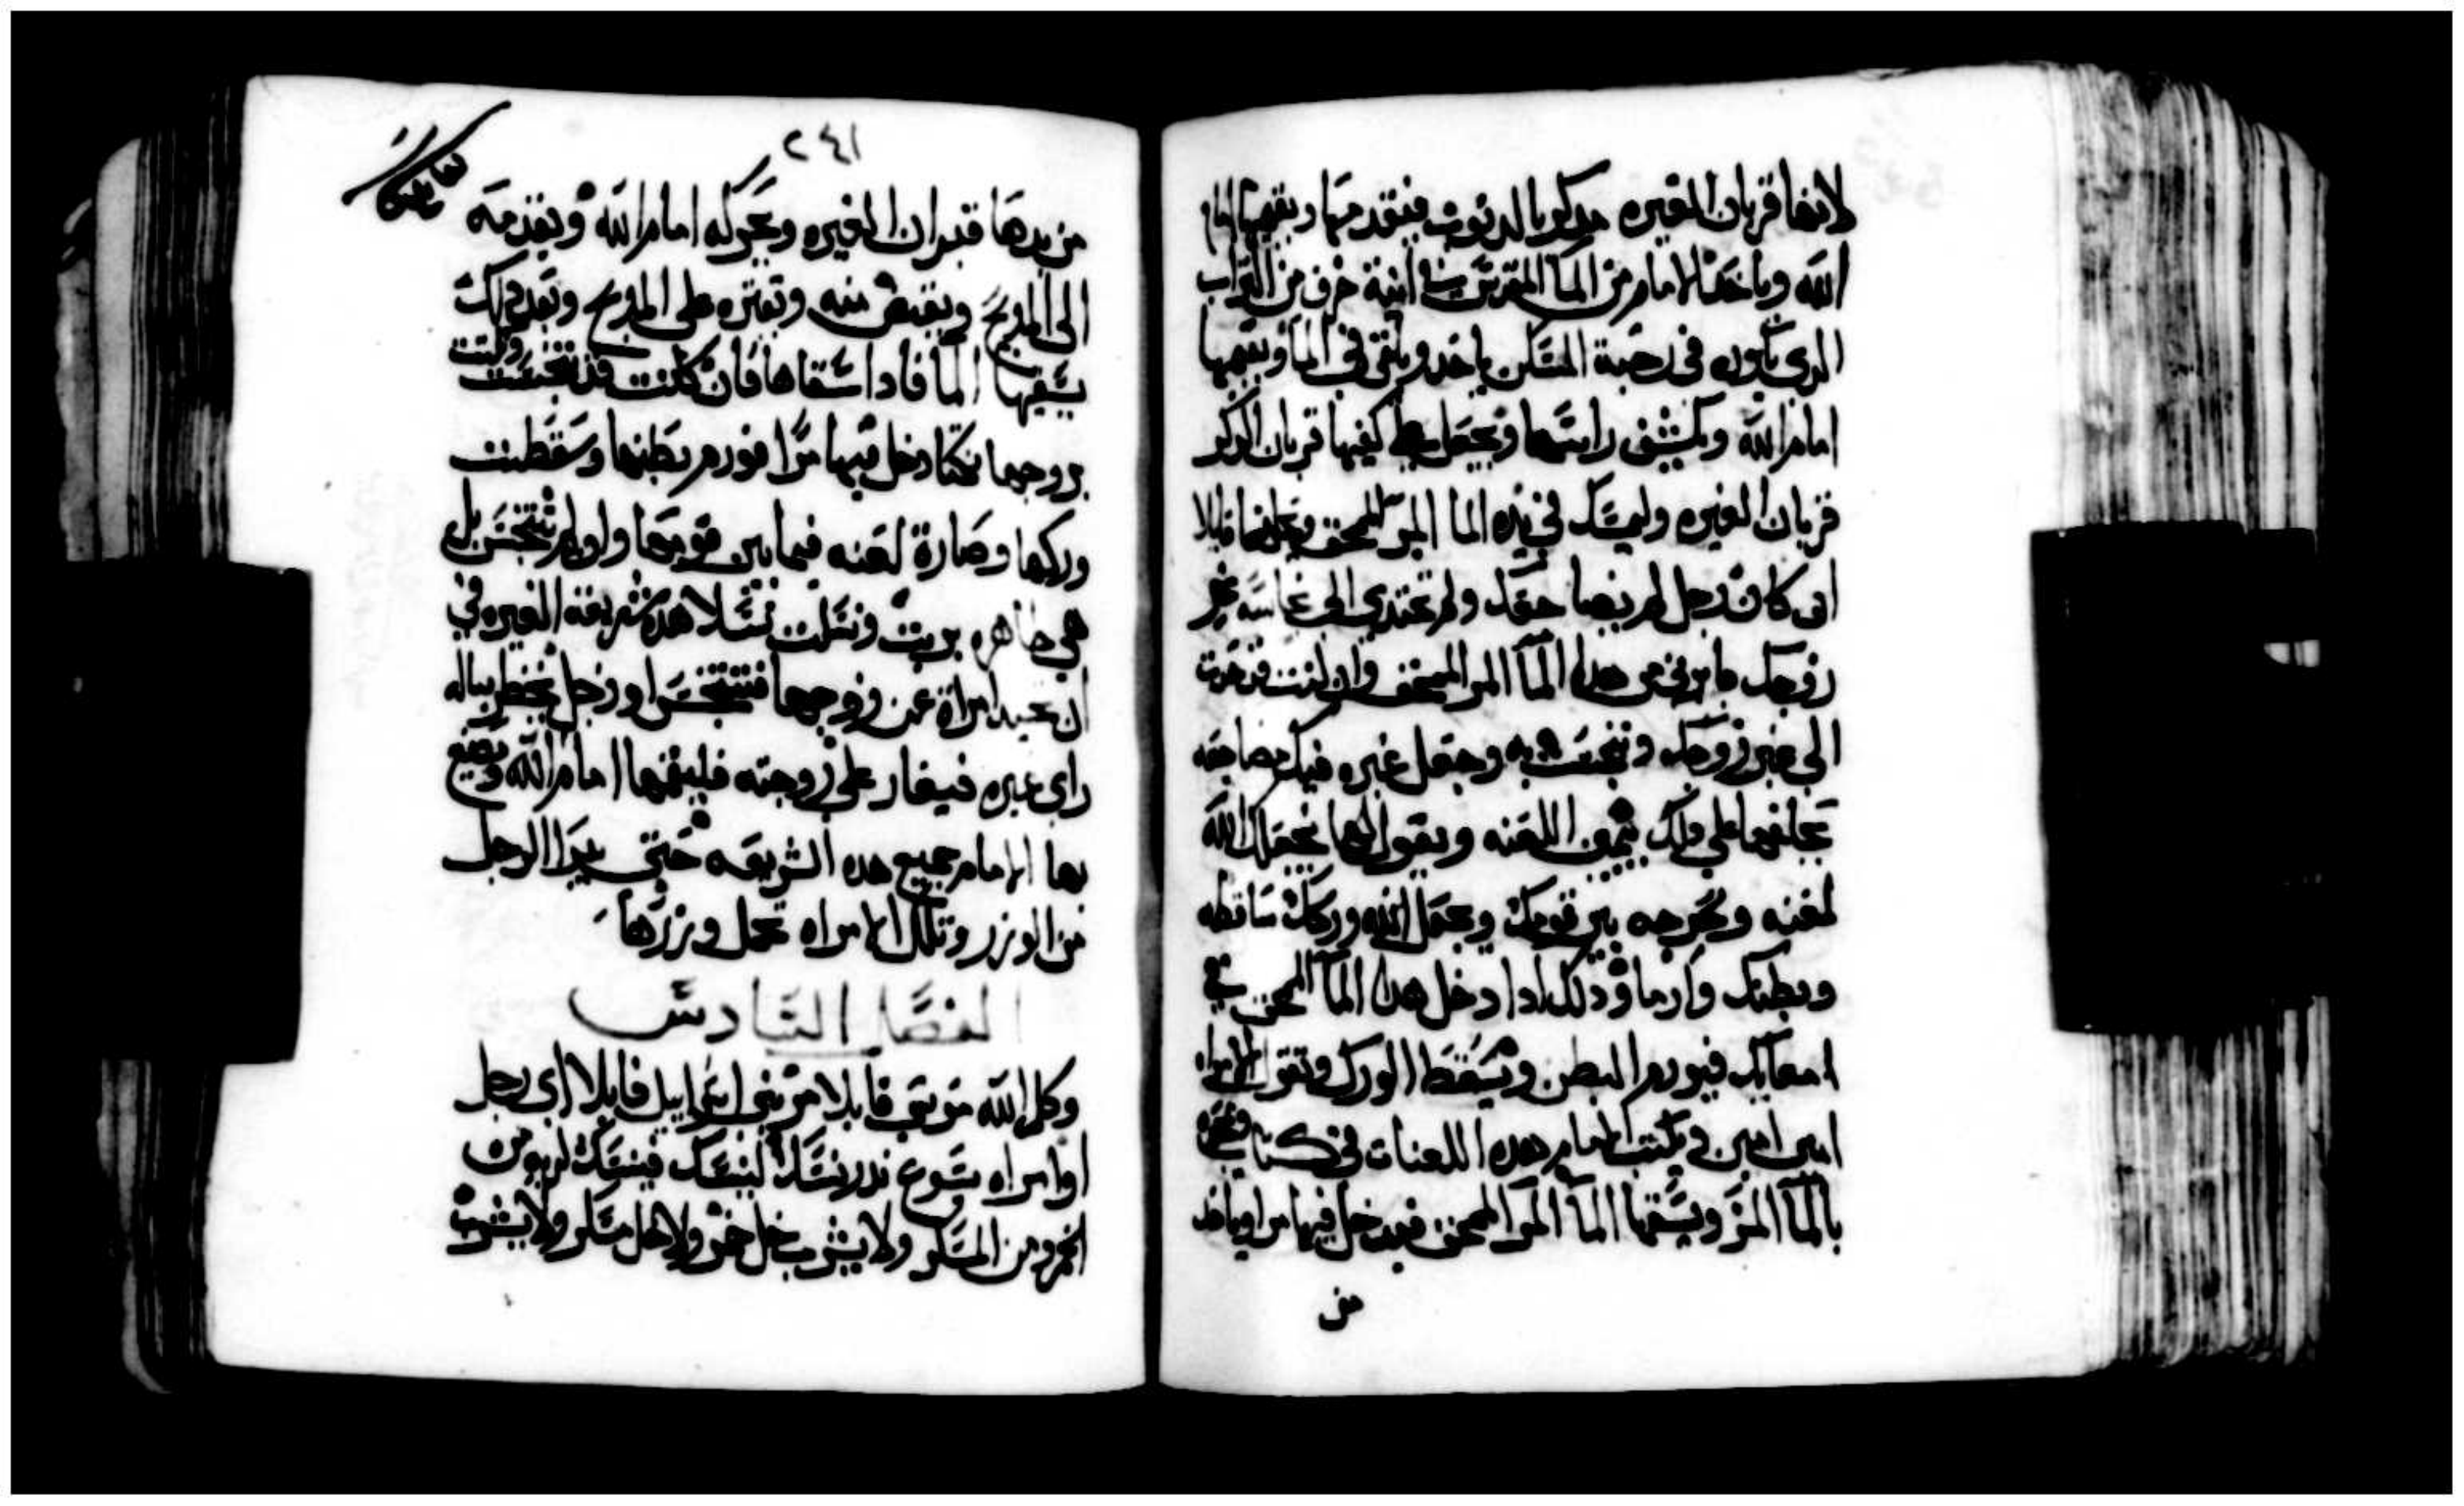 لانها قربان الغيره مدكر بالدنوب فيتقدم بها ويقيمها امام
الله وياخد الامام من الما المقدس في انية خزف من التراب
الدي يكون في رحبة المسكن ياخد ويلقي في الما ويقيمها
امام الله ويكشف راسها ويجعل علي كفيها قربان الدكر
قربان الغيره وليمسك في يده الما المر الممحق ويحلفها قايلا
ان كان رجل لم يضاجعك ولم تعتدي الي نجاسه غير
زوجك فابري من هدا الما المر الممحق وان كنت قد حدت
الي غير زوجك وتنجست به وجعل غيره فيك مضاجعه
يحلفها علي دلك بيمين اللعنه ويقول لها يجعلك الله
لعنه وبحرجه بين قومك ويجعل الله وركك ساقطه
وبطنك وارما ودلك ادا دخل هدا الما الممحق في
امعايك فيورم البطن ويسقط الورك وتقول الامراه
امين امين ويكتب الامام هده اللعنات في كتاب ويمحوه
بالما المر ويسقها الما المر الممحق فيدخل فيها مرا وياخد
من
٢٤١
من يدها قبران الغيره ويحركه امام الله ويقدمه
الي المدبح ويقبض منه ويقتره علي المدبح وبعد دلك
يسقيها الما فادا سقاها فان كانت قد تنجست وخانت
بزوجها خيانة دخل فيها مرا فورم بطنها وسقطت
وركها وصارة لعنه فيما بين قومها وان لم تتنجس بل
هي طاهره بريت ونسلت نسلا هده شريعة الغيره في
ان تحيد امراة عن زوجها فتتنجس او رجل يخطر بباله
راي غيره فيغار علي زوجته فليقفها امام الله ويصنع
بها الامام جميع هده الشريعه حتي يبرا الرجل
من الوزر وتلك الامراه تحمل وزرها
الفصل السادس
وكلم الله موسي قايلا مر بني اسراييل قايلا اي رجل
او امراه يسوع ندر نسك لينسك فينسك لربه من
الخمر ومن المسكر ولا يشرب خل خمر ولا خل مسكر ولا يشرب